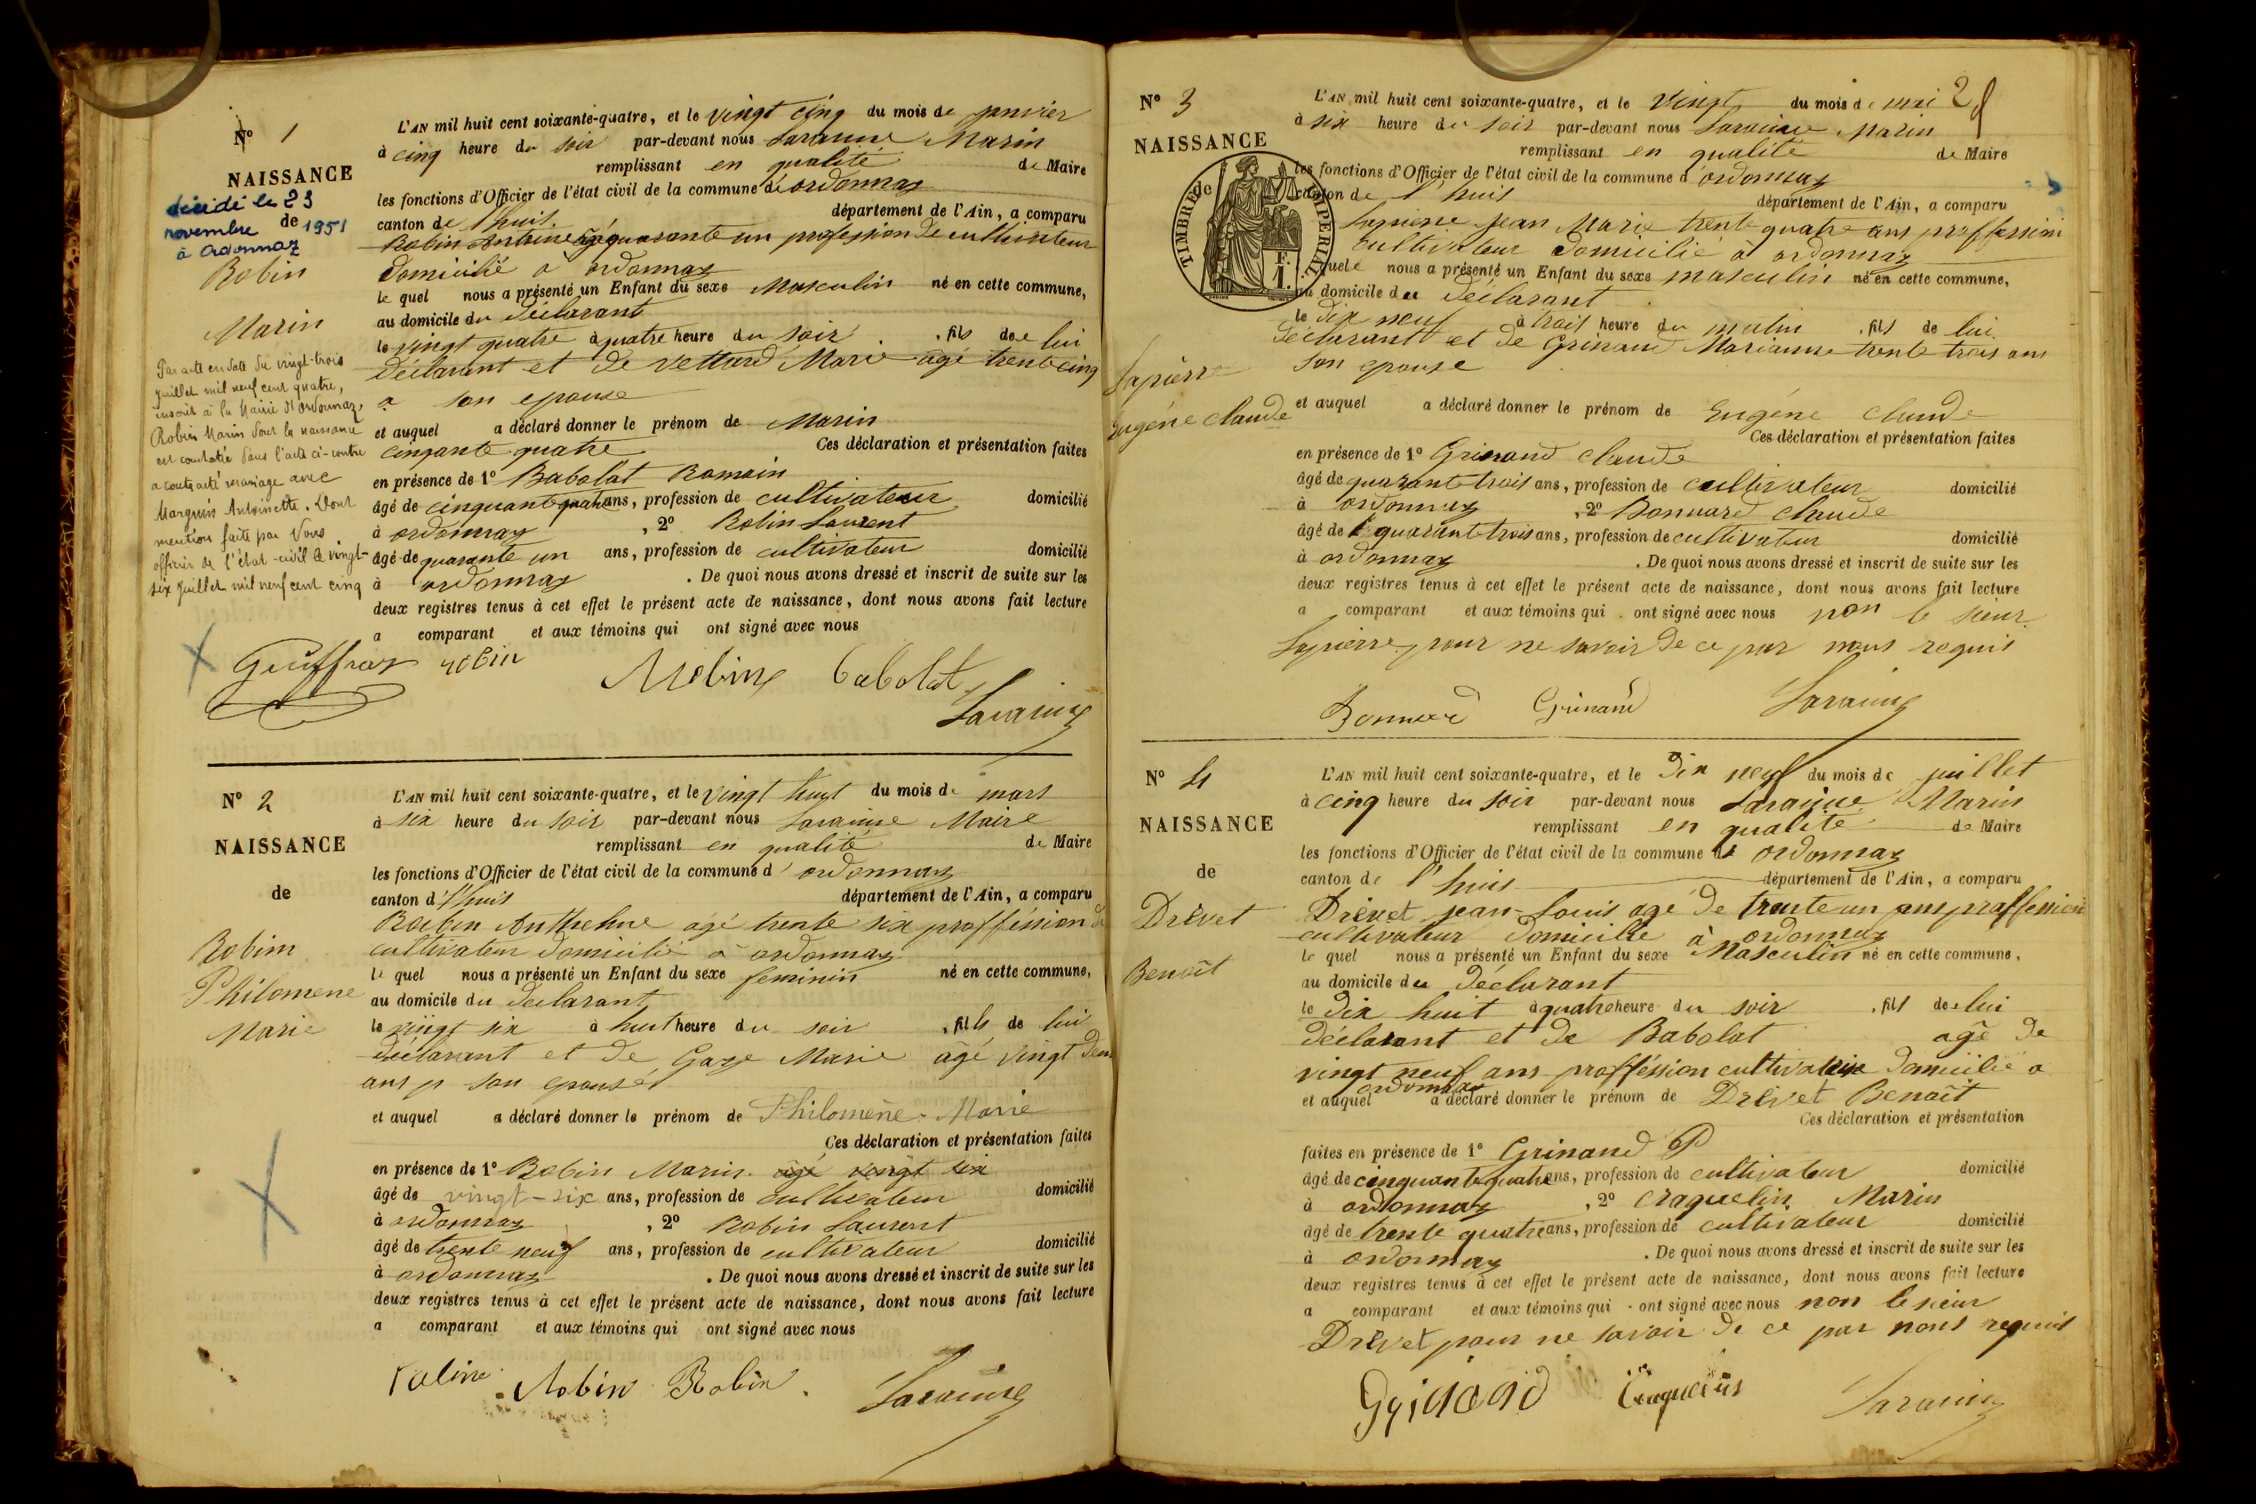 N° 1
NAISSANCE
décédé le 23
novembre de 1951
à Ordonnaz
Robin
Marin
Par acte en date du vingt-trois
juillet mil neuf cent quatre,
inscrit à la Mairie d'Ordonnaz,
Robin Marin dont la naissance
est constatée dans l'acte ci-contre
a contracté mariage avec
Marguin Antoinette. Dont
mention faite par Nous
officier de l'état-civil le vingt-
six juillet mil neuf cent cinq
Geuffray
L'AN mil huit cent soixante-quatre, et le vingt cinq du mois de janvier
à cinq heure du soir par-devant nous Saraime Marin
remplissant en qualité de Maire
les fonctions d'Officier de l'état civil de la commune de ordonnaz
canton de l'huis département de l'Ain, a comparu
Robin Antoine âgé quarante un profession de cultivateur
domicilié à ordonnaz
le quel nous a présenté un Enfant du sexe Masculin né en cette commune,
au domicile du déclarant
le vingt quatre à quatre heure du soir , fils de lui
déclarant et de Vettard Marie agé trente cinq
a son epouse
et auquel a déclaré donner le prénom de Marin
cinqante quatre Ces déclaration et présentation faites
en présence de 1° Babolat Romain
âgé de cinquante quatre ans, profession de cultivateur domicilié
à ordonnaz , 2° Robin Laurent
âgé de quarante un ans, profession de cultivateur domicilié
à ordonnaz . De quoi nous avons dressé et inscrit de suite sur les
deux registres tenus à cet effet le présent acte de naissance, dont nous avons fait lecture
a comparant et aux témoins qui ont signé avec nous
robin Robin babolat
Saraime
N° 2
NAISSANCE
de
Robim
Philomene
Marie
L'AN mil huit cent soixante-quatre, et le vingt huyt du mois de mars
à six heure du soir par-devant nous Saraime Maire
remplissant en qualité de Maire
les fonctions d'Officier de l'état civil de la commune d'ordonnaz
canton d l'huis département de l'Ain, a comparu
Robin Anthelme agé trente six proffession de
cultivateur domicilié à ordonnaz
le quel nous a présenté un Enfant du sexe feminin né en cette commune,
au domicile du déclarant
le vingt six à huit heure du soir , fille de lui
déclarant et de Gaze Marie âgé vingt deux
ans son epouse
et auquel a déclaré donner le prénom de Philomène Marie
Ces déclaration et présentation faites
en présence de 1° Robin Marin âgé vingt six
âgé de vingt-six ans, profession de cultivateur domicilié
à ordonnaz , 2° Robin Laurent
âgé de trente neuf ans, profession de cultivateur domicilié
à ordonnaz . De quoi nous avons dressé et inscrit de suite sur les
deux registres tenus à cet effet le présent acte de naissance, dont nous avons fait lecture
a comparant et aux témoins qui ont signé avec nous
Robin Robin Saraime
N° 3
NAISSANCE
de
TIMBRE IMPERIAL
F.
1.
Lapierre
Eugéne claude
L'AN mil huit cent soixante-quatre, et le vingt du mois de mai 2
à six heure du soir par-devant nous Saraime Marin
remplissant en qualité de Maire
les fonctions d'Officier de l'état civil de la commune d'ordonnaz
canton de l'huis département de l'Ain, a comparu
Lapierre jean Marie trente quatre ans proffession
cultivateur domicilié à ordonnaz
quel nous a présenté un Enfant du sexe masculin né en cette commune,
au domicile du déclarant
le dix neuf à trois heure du matin , fils de lui
déclarant et de Grinand Marianne trente trois ans
son epouse
et auquel a déclaré donner le prénom de Eugéne claude
Ces déclaration et présentation faites
en présence de 1° Grinand claude
âgé de quarante trois ans, profession de cultivateur domicilié
à ordonnaz , 2° Bonnard claude
âgé de quarante trois ans, profession de cultivateur domicilié
à ordonnaz . De quoi nous avons dressé et inscrit de suite sur les
deux registres tenus à cet effet le présent acte de naissance, dont nous avons fait lecture
a comparant et aux témoins qui ont signé avec nous non le sieur
Lapierre pour ne savoir de ce par nous requis
Bonnard Grinand Saraime
N° 4
NAISSANCE
de
Drevet
Benoît
L'AN mil huit cent soixante-quatre, et le dix neuf du mois de juillet
à cinq heure du soir par-devant nous Saraime Marin
remplissant en qualité de Maire
les fonctions d'Officier de l'état civil de la commune de ordonnaz
canton de l'huis département de l'Ain, a comparu
Drevet jean-Louis agé de trente un ans proffession
cultivateur domicilié à ordonnaz
le quel nous a présenté un Enfant du sexe Masculin né en cette commune,
au domicile du déclarant
le dix huit à quatre heure du soir , fils de lui
déclarant et de Babolat agé de
vingt neuf ans proffession cultivatrice domicilié a
ordonnaz
et auquel a déclaré donner le prénom de Drevet Benoît
Ces déclaration et présentation
faites en présence de 1° Grinand P
âgé de cinquante quatre ans, profession de cultivateur domicilié
à ordonnaz , 2° Craquelin Marin
âgé de trente quatre ans, profession de cultivateur domicilié
à ordonnaz . De quoi nous avons dressé et inscrit de suite sur les
deux registres tenus à cet effet le présent acte de naissance, dont nous avons fait lecture
a comparant et aux témoins qui ont signé avec nous non le sieur
Drevet pour ne savoir de ce par nous requis
Grinand Craquelin Saraime